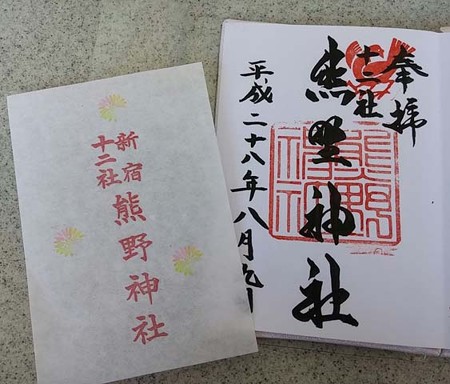 新宿
十二社
熊野神社
奉拝
十二社
熊野神社
熊野
神社
平成二十八年八月九日